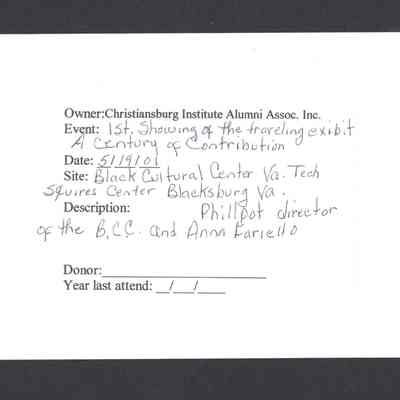 Owner:Christiansburg Institute Alumni Assoc. Inc.
Event: 1st. Showing of the traveling exibit
A Century of Contribution
Date: 5/19/01
Site: Black Cultural Center Va. Tech
Squires Center Blacksburg Va.
Description: Phillpot director
of the B.C.C. and Anna Fariello
Donor:
Year last attend: __/__/____